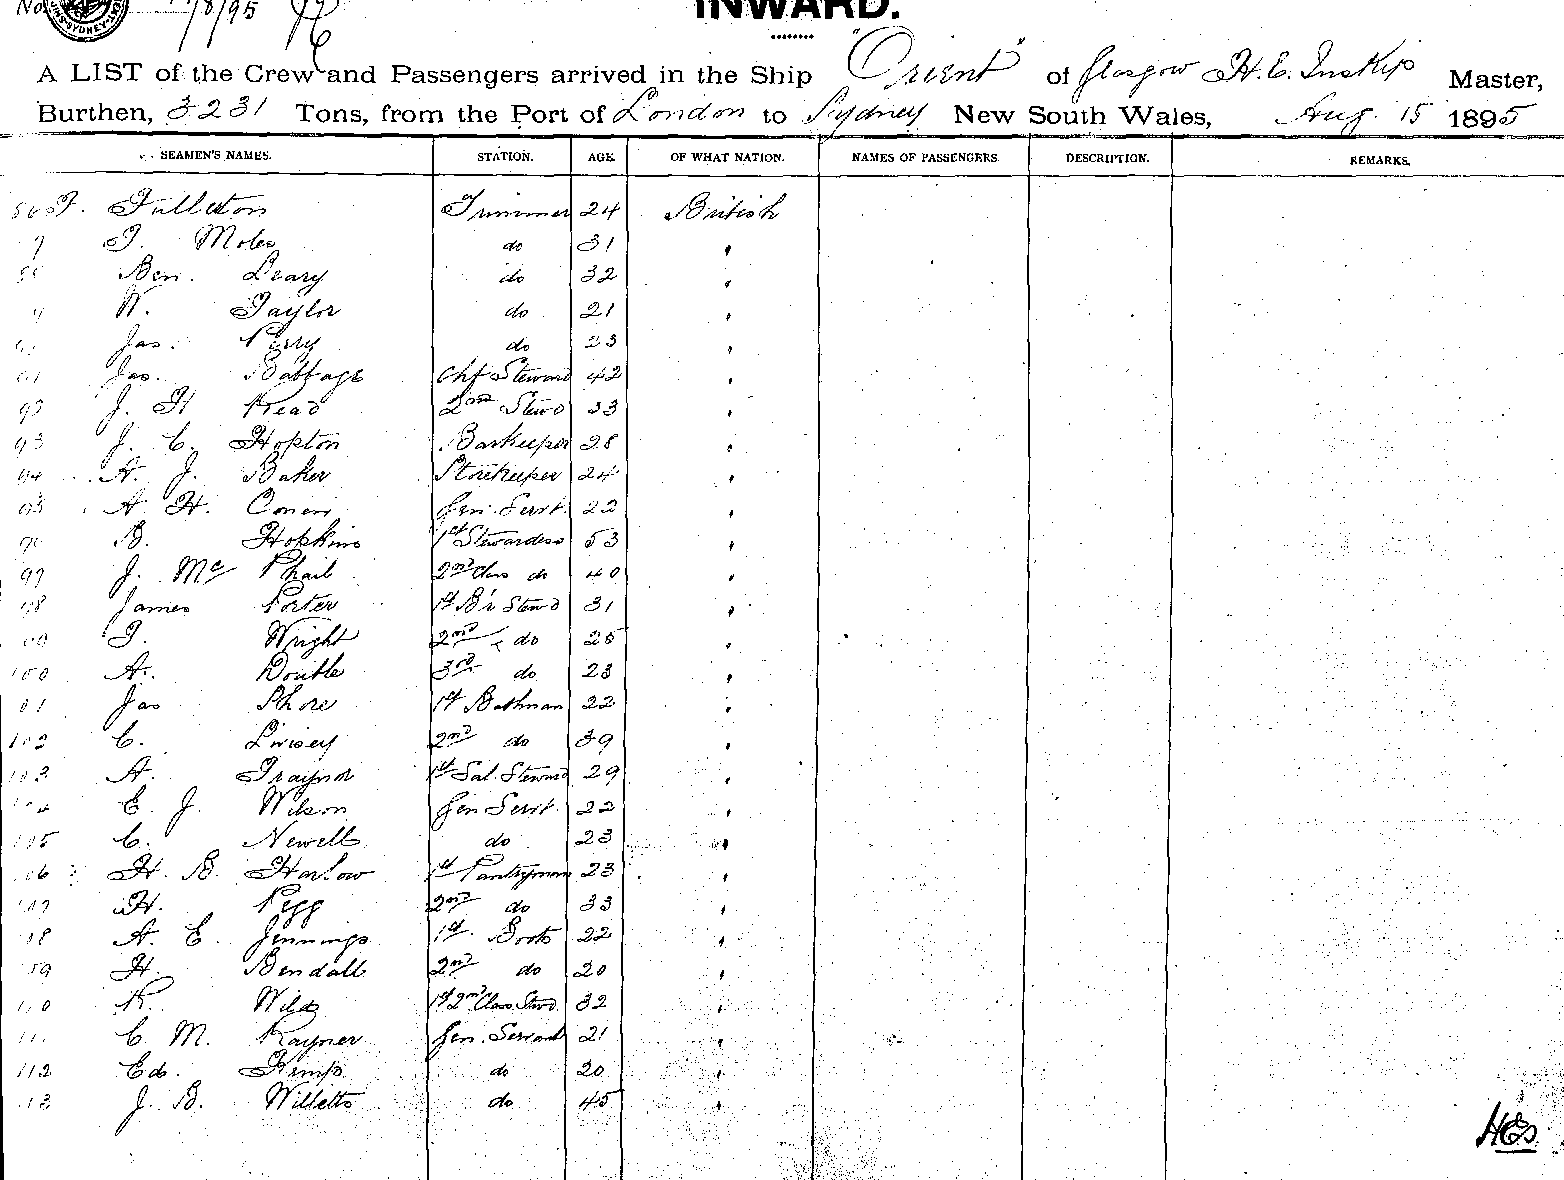 No
/8/95
INWARD.
A LIST of the Crew and Passengers arrived in the Ship "Orient" of Glasgow H. E. Inskip Master,
Burthen, 3231 Tons, from the Port of London to Sydney New South Wales, Aug. 15 1895
SEAMEN'S NAMES. STATION. AGE. OF WHAT NATION. NAMES OF PASSENGERS. DESCRIPTION. REMARKS.
Fullerton Trimmer 24 British
Moles do 31 "
Ben. Leary do 32 "
W. Taylor do 21 "
Jas. Perry do 23 "
Jas. Babbage Chf Steward 42 "
J. H Read 2nd Stewd 33 "
93 J. C. Hopton Barkeeper 28 "
94 A. J. Baker Storekeeper 24 "
A H. Gen. Servt. 22 "
B. Hopkins 1st Stewardess 53 "
97 J. Mc Phail 2nd Class do 40 "
98 James Porter 1st B'r Stewd 31 "
Wright 2nd do 25 "
100 A. Double 3rd do 23 "
Jas Shore 1st Bathman 22 "
102 C. Livisey 2nd do 39 "
103 A. Traynor 1st Sal. Steward 29 "
E. J. Wilson Gen Servt. 22 "
105 C. Newell do 23 "
106 H. B. Harlow 1st Pantryman 23 "
107 H. Pegg 2nd do 33 "
A. E. Jennings 1st Boots 22 "
109 H. Bendall 2nd do 20 "
110 R. Wild 1st 2nd Class Stwd 32 "
C. M. Rayner Gen. Servant 21 "
112 Ed. Kemp do 20 "
113 J. B. Willetts do 45 "